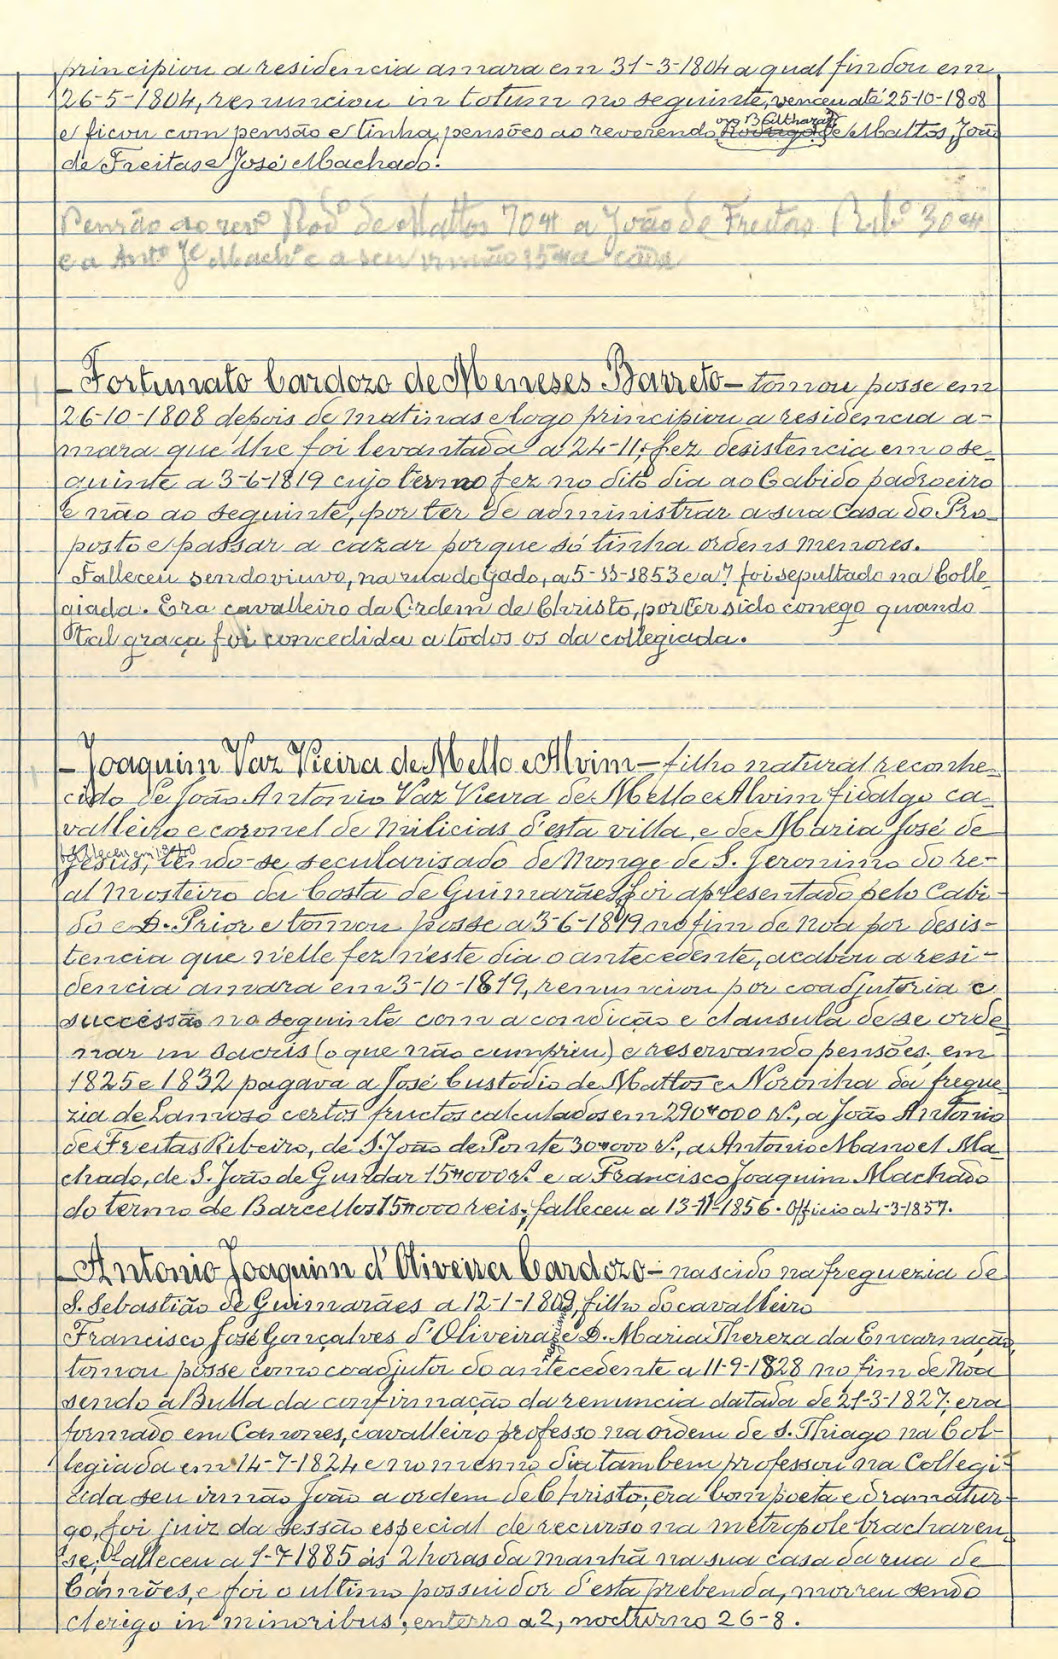 principiou a residencia amara em 31-3-1804 a qual findou em
26-5-1804, renunciou in totum no seguinte, venceu até 25-10-1808
e ficou com pensão e tinha pensões ao reverendo Rodrigo de Mattos, João
de Freitas e José Machado.
Pensão ao revº Rodº de Mattos 70 a João de Freitas Ribº 30
e a Antº Jº Machº e a seu irmão 15 a cada
– Fortunato Cardozo de Meneses Barreto – tomou posse em
26-10-1808 depois de matinas e logo principiou a residencia a-
mara que lhe foi levantada a 24-11; fez desistencia em o se-
guinte a 3-6-1819 cujo termo fez no dito dia ao Cabido padroeiro
e não ao seguinte, por ter de administrar a sua Casa do Pro-
posto e passar a cazar porque só tinha ordens menores.
Falleceu sendo viuvo, na rua do Gado, a 5-11-1853 e a 7 foi sepultado na Colle-
giada. Era cavalleiro da Ordem de Christo, por ter sido conego quando
tal graça foi concedida a todos os da collegiada.
– Joaquim Vaz Vieira de Mello e Alvim – filho natural reconhe-
cido de João Antonio Vaz Vieira de Mello e Alvim fidalgo ca-
valleiro e coronel de milicias d'esta villa, e de Maria José de
Jesus, tendo-se secularisado de Monge de S. Jeronimo do re-
al mosteiro da Costa de Guimarães, foi apresentado pelo Cabi-
do e D. Prior e tomou posse a 3-6-1819 no fim de Noa por desis-
tencia que n'elle fez n'este dia o antecedente, acabou a resi-
dencia amara em 3-10-1819, renunciou por coadjutoria e
successão no seguinte com a condição e clausula de se orde-
nar in sacris (o que não cumpriu) e reservando pensões; em
1825 e 1832 pagava a José Custodio de Mattos e Noronha da fregue-
zia de Lanhoso certos fructos calculados em 290$000 rs., a João Antonio
de Freitas Ribeiro, de S. João de Ponte 30$000 rs., a Antonio Manoel Ma-
chado, de S. João de Gondar 15$000 rs. e a Francisco Joaquim Machado
do termo de Barcellos 15$000 reis; falleceu a 13-11-1856. Officio a 4-3-1857.
– Antonio Joaquim d'Oliveira Cardozo – nascido na freguezia de
S. Sebastião de Guimarães a 12-1-1809, filho do cavalleiro
Francisco José Gonçalves d'Oliveira e D. Maria Thereza da Encarnação,
tomou posse como coadjutor do antecedente a 11-9-1828 no fim de Noa
sendo a Bulla da confirmação da renuncia datada de 21-3-1827; era
formado em Canones, cavalleiro professo na ordem de S. Thiago na Col-
legiada em 14-7-1824 e no mesmo dia tambem professou na Collegi-
ada seu irmão João a ordem de Christo; era bom poeta e dramatur-
go, foi juiz da sessão especial de recurso na metropole bracharen-
se; Falleceu a 1-7-1885 ás 2 horas da manhã na sua casa da rua de
Camões, e foi o ultimo possuidor d'esta prebenda, morreu sendo
clerigo in minoribus; enterro a 2, nocturno 26-8.